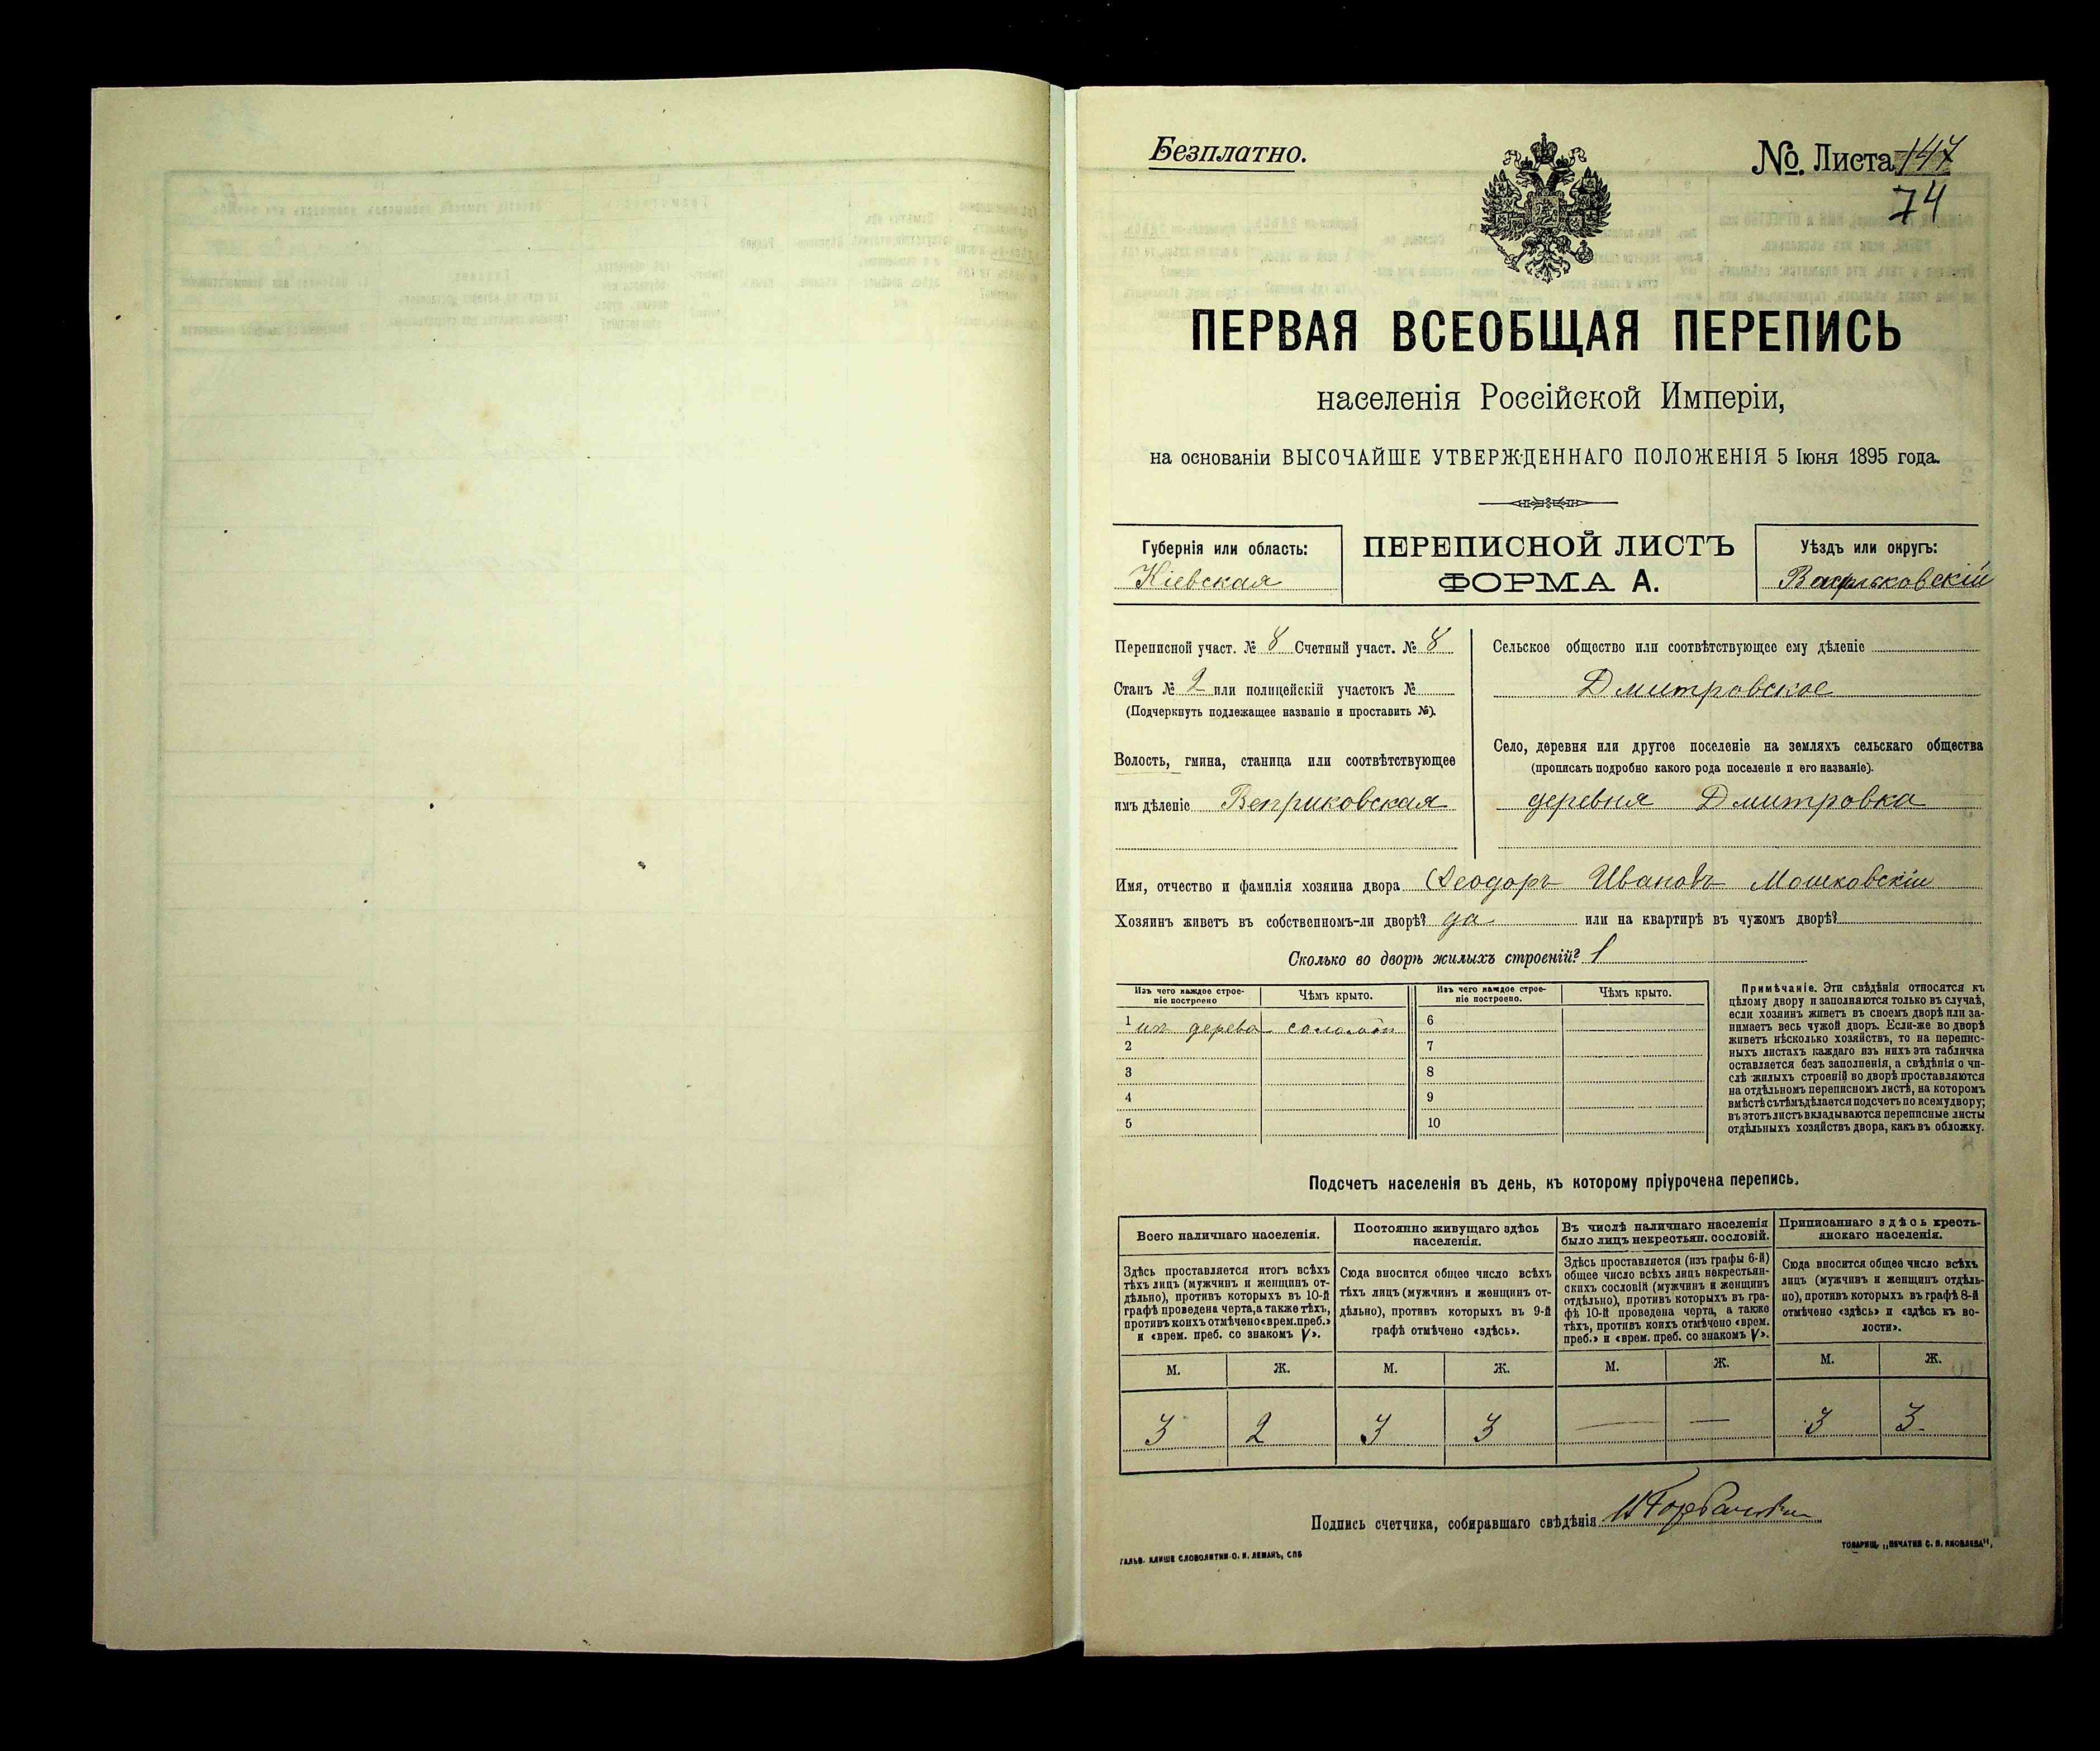 Безплатно.
№. Листа 147
74
ПЕРВАЯ ВСЕОБЩАЯ ПЕРЕПИСЬ
населенія Россійской Имперіи,
на основаніи ВЫСОЧАЙШЕ УТВЕРЖДЕННАГО ПОЛОЖЕНІЯ 5 Іюня 1895 года.
Губернія или область:
Кіевская
ПЕРЕПИСНОЙ ЛИСТЪ
ФОРМА А.
Уѣздъ или округъ:
Васильковскій
Переписной участ. № 8 Счетный участ. № 8
Станъ № 2 или полицейскій участокъ №
(Подчеркнуть подлежащее названіе и проставить №).
Волость, гмина, станица или соотвѣтствующее
имъ дѣленіе Веприковская
Сельское общество или соотвѣтствующее ему дѣленіе
Дмитровское
Село, деревня или другое поселеніе на земляхъ сельскаго общества
(прописать подробно какого рода поселеніе и его названіе).
деревня Дмитровка
Имя, отчество и фамилія хозяина двора Ѳеодоръ Ивановъ Мошковскій
Хозяинъ живетъ въ собственномъ-ли дворѣ? да или на квартирѣ въ чужомъ дворѣ?
Сколько во дворѣ жилыхъ строеній? 1
Изъ чего каждое строе-
ніе построено
Чѣмъ крыто.
Изъ чего каждое строе-
ніе построено.
Чѣмъ крыто.
1 изъ дерева соломой 6
2 7
3 8
4 9
5 10
Примѣчаніе. Эти свѣдѣнія относятся къ
цѣлому двору и заполняются только въ случаѣ,
если хозяинъ живетъ въ своемъ дворѣ или за-
нимаетъ весь чужой дворъ. Если-же во дворѣ
живетъ нѣсколько хозяйствъ, то на перепис-
ныхъ листахъ каждаго изъ нихъ эта табличка
оставляется безъ заполненія, а свѣдѣнія о чи-
слѣ жилыхъ строеній во дворѣ проставляются
на отдѣльномъ переписномъ листѣ, на которомъ
вмѣстѣ съ тѣмъ дѣлается подсчетъ по всему двору;
въ этотъ листъ вкладываются переписные листы
отдѣльныхъ хозяйствъ двора, какъ въ обложку.
Подсчетъ населенія въ день, къ которому пріурочена перепись.
Всего наличнаго населенія.
Здѣсь проставляется итогъ всѣхъ
тѣхъ лицъ (мужчинъ и женщинъ от-
дѣльно), противъ которыхъ въ 10-й
графѣ проведена черта, а также тѣхъ,
противъ коихъ отмѣчено «врем. преб.»
и «врем. преб. со знакомъ V».
Постоянно живущаго здѣсь
населенія.
Сюда вносится общее число всѣхъ
тѣхъ лицъ (мужчинъ и женщинъ от-
дѣльно), противъ которыхъ въ 9-й
графѣ отмѣчено «здѣсь».
Въ числѣ наличнаго населенія
было лицъ некрестьян. сословій.
Здѣсь проставляется (изъ графы 6-й)
общее число всѣхъ лицъ некрестьян-
скихъ сословій (мужчинъ и женщинъ
отдѣльно), противъ которыхъ въ гра-
фѣ 10-й проведена черта, а также
тѣхъ, противъ коихъ отмѣчено «врем.
преб.» и «врем. преб. со знакомъ V».
Приписаннаго здѣсь кресть-
янскаго населенія.
Сюда вносится общее число всѣхъ
лицъ (мужчинъ и женщинъ отдѣль-
но), противъ которыхъ въ графѣ 8-й
отмѣчено «здѣсь» и «здѣсь къ во-
лости».
М. Ж. М. Ж. М. Ж. М. Ж.
3 2 3 3 — — 3 3
Подпись счетчика, собиравшаго свѣдѣнія
ГАЛЬВ. КЛИШЕ СЛОВОЛИТНИ О. И. ЛЕМАНЪ, СПБ
ТОВАРИЩ. „ПЕЧАТНЯ С. П. ЯКОВЛЕВА",